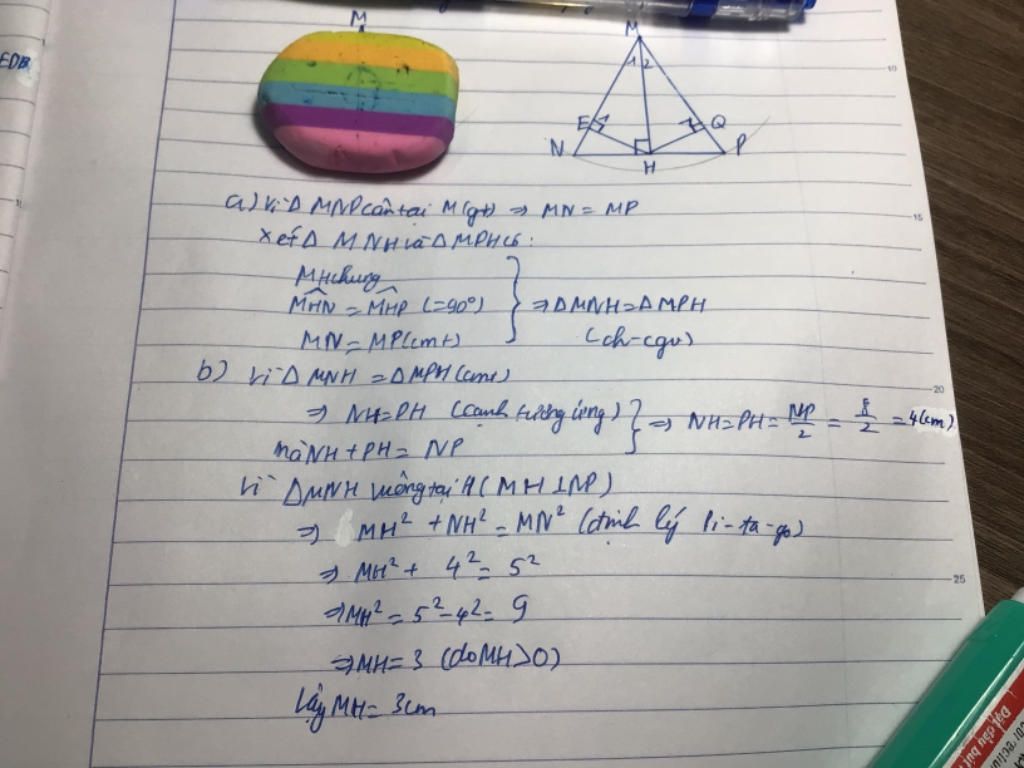 EDB
M
M
1 2
E Q
N P
H
10
15
20
25
a) Vì Δ MNP cân tại M (gt) ⇒ MN = MP
Xét Δ MNH và Δ MPH có:
MH chung
MHN = MHP (=90°)
MN = MP (cmt)
⇒ ΔMNH = ΔMPH
(ch-cgv)
b) Vì Δ MNH = Δ MPH (cmt)
⇒ NH = PH (cạnh tương ứng)
mà NH + PH = NP
⇒ NH = PH = NP/2 = 8/2 = 4 (cm)
Vì ΔMNH vuông tại H (MH ⊥ NP)
⇒ MH² + NH² = MN² (định lý Pi-ta-go)
⇒ MH² + 4² = 5²
⇒ MH² = 5² - 4² = 9
⇒ MH = 3 (do MH > 0)
Vậy MH = 3cm
Bắt đầu bút